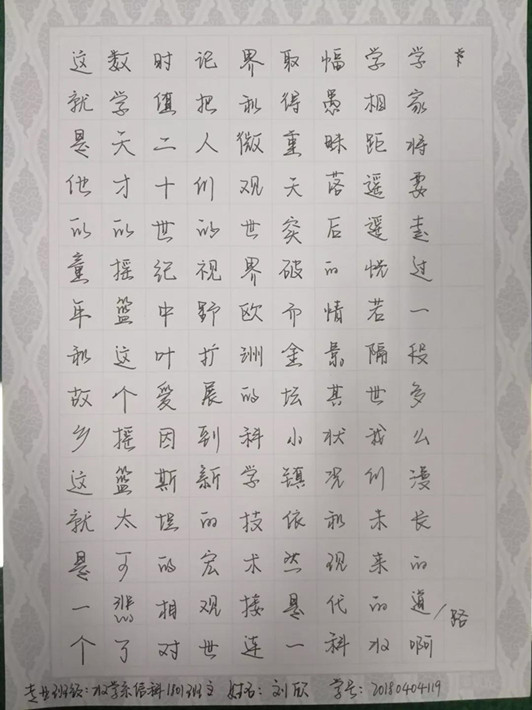 这就是他的童年和故乡这就是一个
数学天才的摇篮这个摇篮太可悲了
时值二十世纪中叶爱因斯坦的相对
论把人们的视野扩展到新的宏观世
界和微观世界欧洲的科学技术接连
取得重大突破而金坛小镇依然是一
幅愚昧落后的情景其状况和现代科
学相距遥遥恍若隔世我们未来的数
学家将要走过一段多么漫长的道路啊
专业班级：数学系信科1801班 姓名：刘欣 学号：20180404119